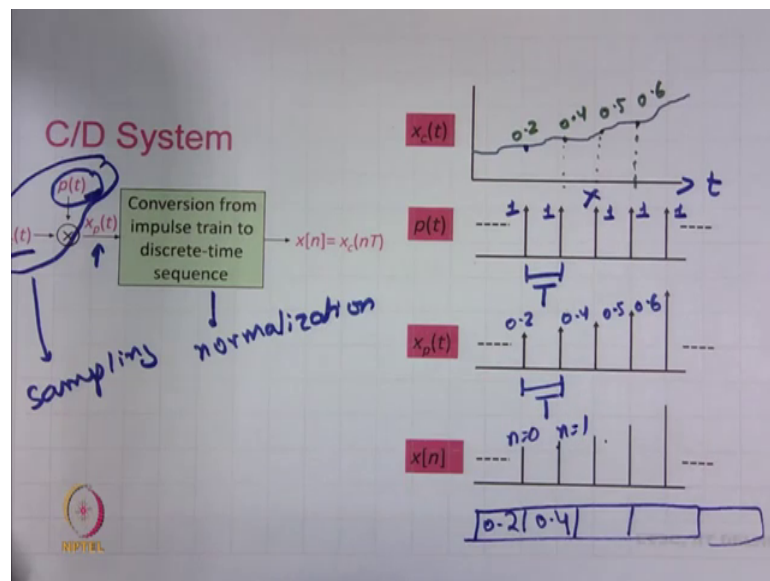 C/D System
p(t)
(t)
x
xp(t)
Conversion from
impulse train to
discrete-time
sequence
x[n]= xc(nT)
sampling
normalization
NPTEL
xc(t)
0.2 0.4 0.5 0.6
t
x
p(t)
1 1 1 1 1
T
xp(t)
0.2 0.4 0.5 0.6
T
x[n]
n=0 n=1
0.2 0.4